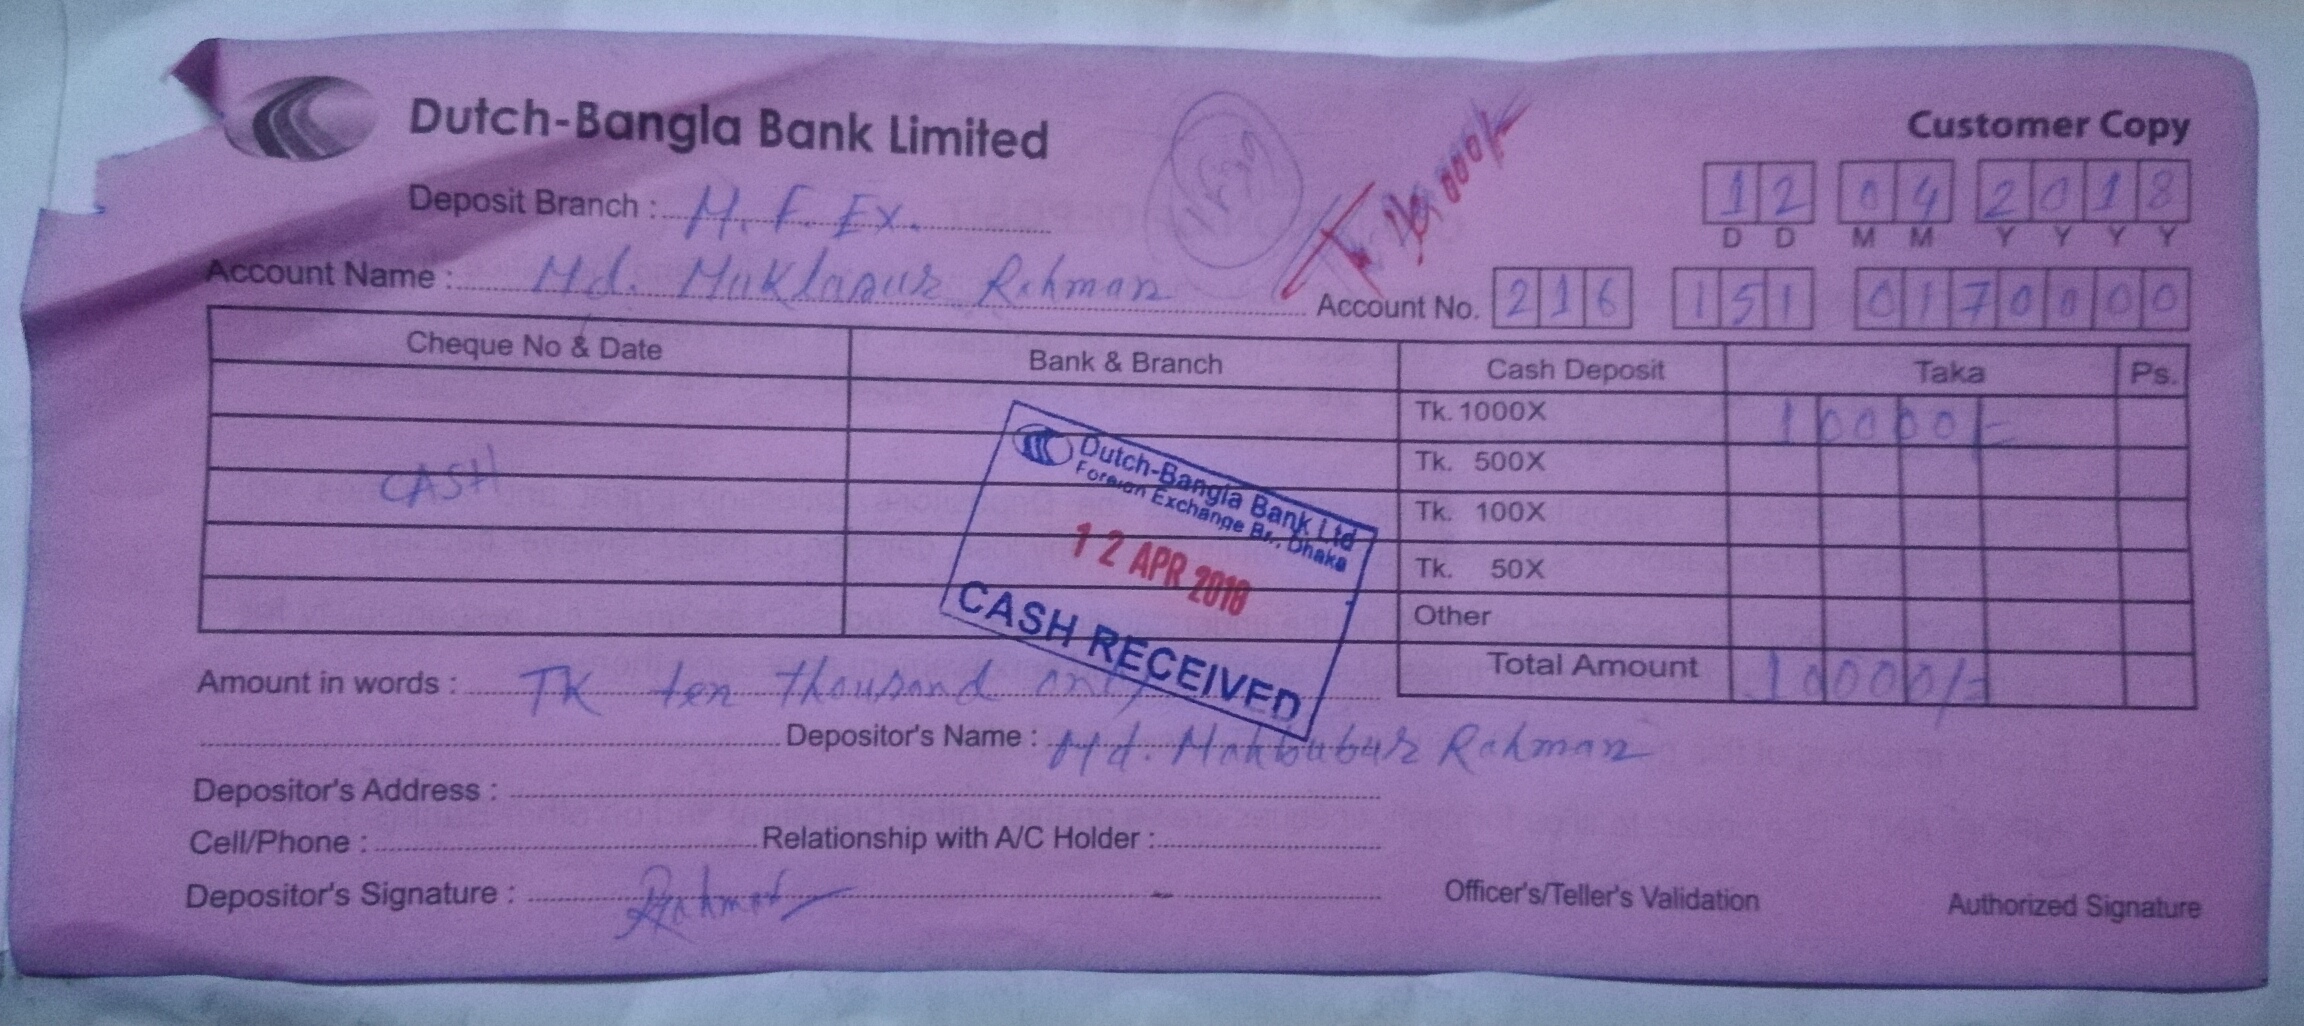 Dutch-Bangla Bank Limited
Customer Copy
Tk. 10,000/-
12 04 2018
D D M M Y Y Y Y
Deposit Branch : M. F. EX.
Account Name : Md. Rahman
Account No. 216 151 0170000
Cheque No & Date Bank & Branch Cash Deposit Taka Ps.
Tk. 1000X 10000/=
Tk. 500X
CASH
Tk. 100X
Tk. 50X
Other
Total Amount 10000/=
Dutch-Bangla Bank Ltd
Foreign Exchange Br., Dhaka
12 APR 2018
CASH RECEIVED
Amount in words : TK ten thousand only
Depositor's Name : Md. Mahbubur Rahman
Depositor's Address :
Cell/Phone : Relationship with A/C Holder :
Depositor's Signature : Rahman
Officer's/Teller's Validation Authorized Signature